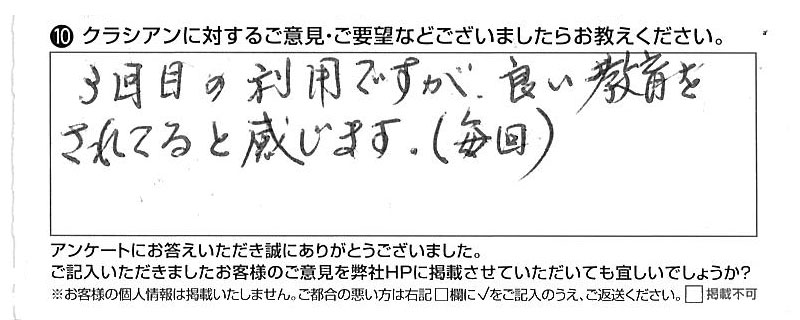 ⑩ クラシアンに対するご意見・ご要望などございましたらお教えください。
3回目の利用ですが、良い教育を
されてると感じます。(毎回)
アンケートにお答えいただき誠にありがとうございました。
ご記入いただきましたお客様のご意見を弊社HPに掲載させていただいても宜しいでしょうか?
※お客様の個人情報は掲載いたしません。ご都合の悪い方は右記□欄に√をご記入のうえ、ご返送ください。□掲載不可